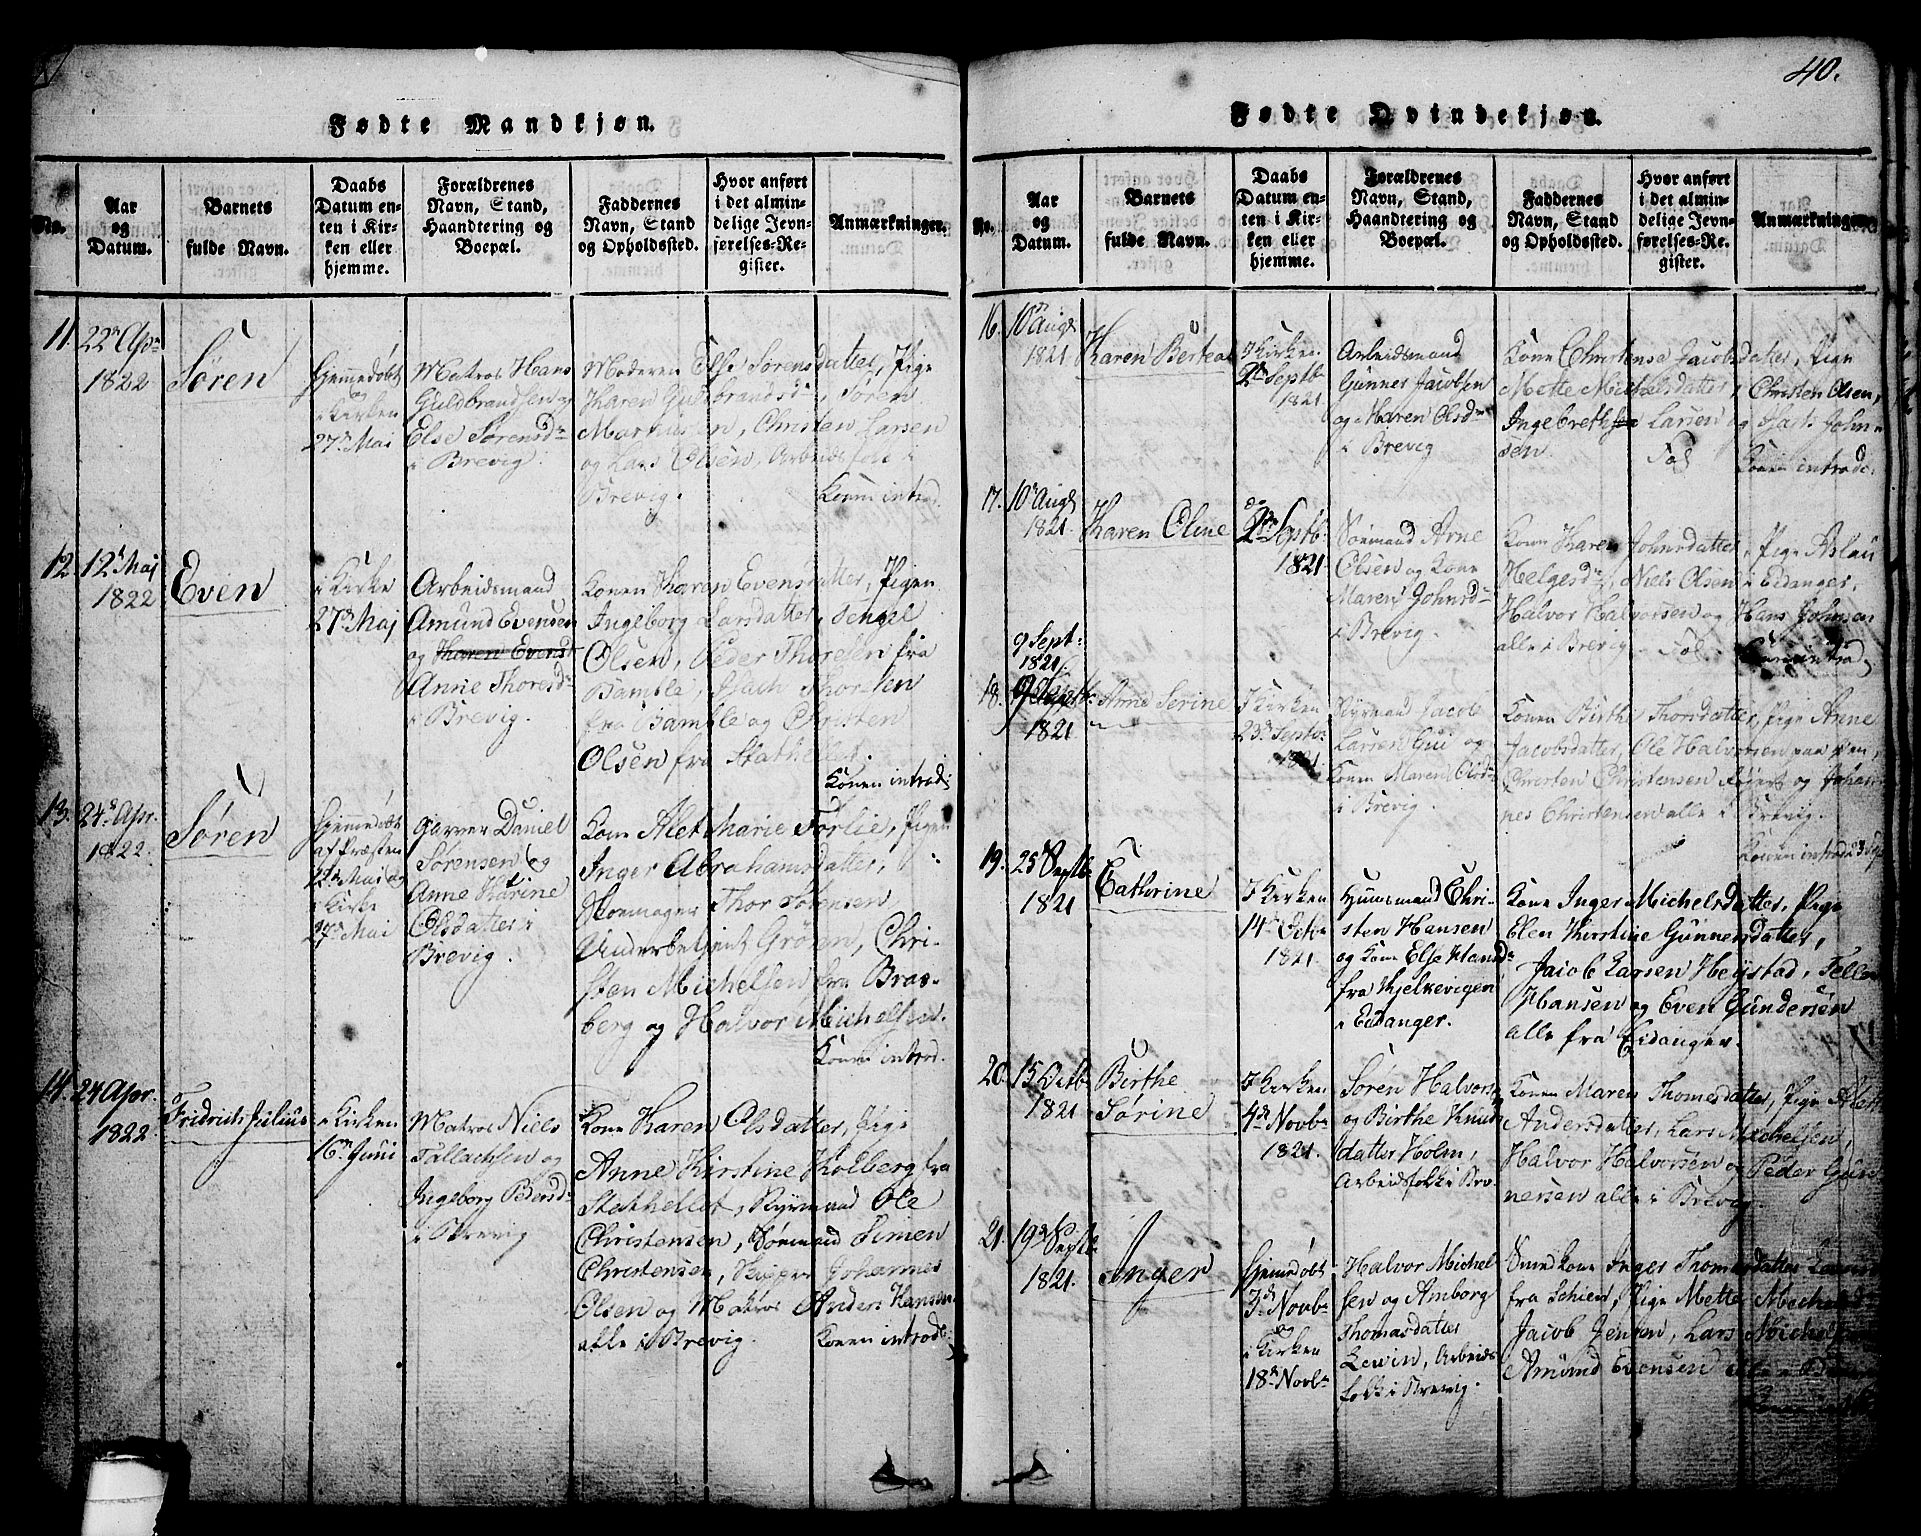 40.
Fødte Mandkjøn.
No.
Aar
og
Datum.
Barnets
fulde Navn.
Daabs
Datum en-
ten i Kir-
ken eller
hjemme.
Forældrenes
Navn, Stand,
Haandtering og
Boepæl.
Faddernes
Navn, Stand
og Opholdssted.
Hvor anført
i det almin-
delige Jevn-
førelses-Re-
gister.
Anmærkninger.
11.
22de Apr
1822
Søren
Hjemmedøbt
i Kirken
27de Mai
Matros Hans
Guldbrandsen og
Else Sørensdr
i Brevig.
Moderen Else Sørensdatter, Pige
Karen Guldbrandsdr, Søren
Markussen, Christen Larsen
og Lars Olsen, Arbeidsfolk i
Brevig.
Konen introd.
12.
12te Maj
1822
Even
i Kirke
27de Maj
Arbeidsmand
Amund Evensen
og Karen Evensd
Anne Thoresdr
i Brevig.
Konen Karen Evensdatter, Pigen
Ingeborg Larsdatter, Sengel
Olsen, Peder Thoresen fra
Bamble, Isach Thorsen
fra Bamble og Christen
Olsen fra Stathellet.
Konen introd:
13.
24de Apr.
1822.
Søren
Hjemmedøbt
af Præsten
12te Mai og
i Kirke
27de Mai
Garver Daniel
Sørensen og
Anne Karine
Olsdatter i
Brevig.
Kone Alet Marie Forlie, Pigen
Inger Abrahamsdatter,
Skomager Thor Sørensen,
Underbetjent Grøen, Chri-
sten Michelsen fra Bras-
berg og Halvor Michelsen.
Konen introd.
14.
24 Apr.
1822
Fridrich Julius
i Kirken
16de Juni
Matros Niels
Tallachsen og
Ingeborg Pedersdr
i Brevig
Kone Karen Olsdatter, Pige
Anne Kirstine Kolberg fra
Stathellet, Styrmand Ole
Christensen, Sømand Simen
Christensen, Skipper Johannes
Olsen og Matros Anders Hansen
alle i Brevig.
Konen introd.
Fødte Qvindekjøn.
No.
Aar
og
Datum.
Barnets
fulde Navn.
Daabs
Datum en-
ten i Kir-
ken eller
hjemme.
Forældrenes
Navn, Stand,
Haandtering og
Boepæl.
Faddernes
Navn, Stand
og Opholdssted.
Hvor anført
i det almin-
delige Jevn-
førelses-Re-
gister.
Anmærkninger.
16.
10de Augs
1821
Karen Bertea
I Kirken
2de Septbr
1821
Arbeidsmand
Gunner Jacobsen
og Maren Olsdr
i Brevig
Kone Christense Jacobsdatter, Pige
Mette Michelsdatter, Christen Olsen,
Ingebreth Larsen og John
sen.
Konen introd.
17.
10de Augs
1821
Karen Oline
do
2den Septbr.
1821
Sømand Arne
Olsen og Kone
Maren Johnsdr
i Brevig.
Kone Karen Johnsdatter, Pige Aslau
Helgesdr, Niels Olsen i Eidanger,
Halvor Halvorsen og Hans Johnsen
alle i Brevig.
Konen introd.
18.
9 Sept:
1821.
9 Septbr
1821
Anne Serine
I Kirken
23de Septbr
1821
Styrmand Jacob
Larsen Gui og
Konen Maren Olsdr
i Brevig.
Konen Birthe Thorsdatter, Pige Anne
Jacobsdatter, Ole Halvorsen paa Øen,
Christen Christensen Røiert og Johan-
nes Christensen alle i Brevig.
Konen introd
19.
25de Septbr
1821
Cathrine
I Kirken
14de Octbr
1821.
Huusmand Chri-
sten Hansen
og Kone Else Hansdr
fra Kjelkevigen
i Eidanger.
Kone Inger Michelsdatter, Pige
Elen Kirstine Gunnersdatter,
Jacob Larsen Heistad,
Hansen og Even Gundersen
alle fra Eidanger.
20.
15 Octbr
1821
Birthe
Sørine
I Kirken
4de Novbr
1821.
Søren Halvors
og Birthe Knud
datter Holm,
Arbeidsfolk i Bre.
Konen Maren Thomesdatter, Pige Alet
Andersdatter, Lars Michelsen,
Halvor Halvorsen og Peder Gun
nersen alle i Brevig.
21.
19de Septbr
1821.
Inger
Hjemmedøbt
3de Novbr
og
i Kirken
18de Novbr
Halvor Michel
sen og Amborg
Thomasdatter
Lewin, Arbeids
folk i Brevig.
Smedkone Inger Thomasdatter Lewin
fra Schien, Pige Mette Michels
Jacob Jensen, Lars Michels
Amund Evensen alle i